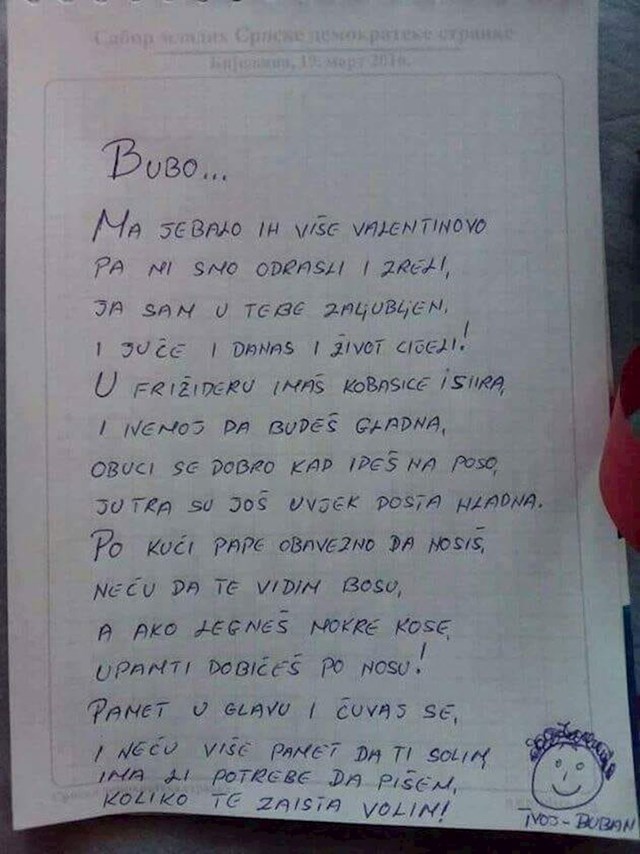 Сабор младих Српске демократске странке
Бијељина, 19. март 2016.
BUBO...
MA JEBALO IH VIŠE VALENTINOVO
PA MI SMO ODRASLI I ZRELI,
JA SAM U TEBE ZALJUBLJEN,
I JUČE I DANAS I ŽIVOT CIJELI!
U FRIŽIDERU IMAŠ KOBASICE I SIRA,
I NEMOJ DA BUDEŠ GLADNA,
OBUCI SE DOBRO KAD IDEŠ NA POSO,
JUTRA SU JOŠ UVJEK DOSTA HLADNA.
PO KUĆI PAPE OBAVEZNO DA NOSIŠ,
NEĆU DA TE VIDIM BOSU,
A AKO LEGNEŠ MOKRE KOSE,
UPAMTI DOBIĆEŠ PO NOSU!
PAMET U GLAVU I ČUVAJ SE,
I NEĆU VIŠE PAMET DA TI SOLIM,
IMA LI POTREBE DA PIŠEM,
KOLIKO TE ZAISTA VOLIM!
TVOJ-BUBAN